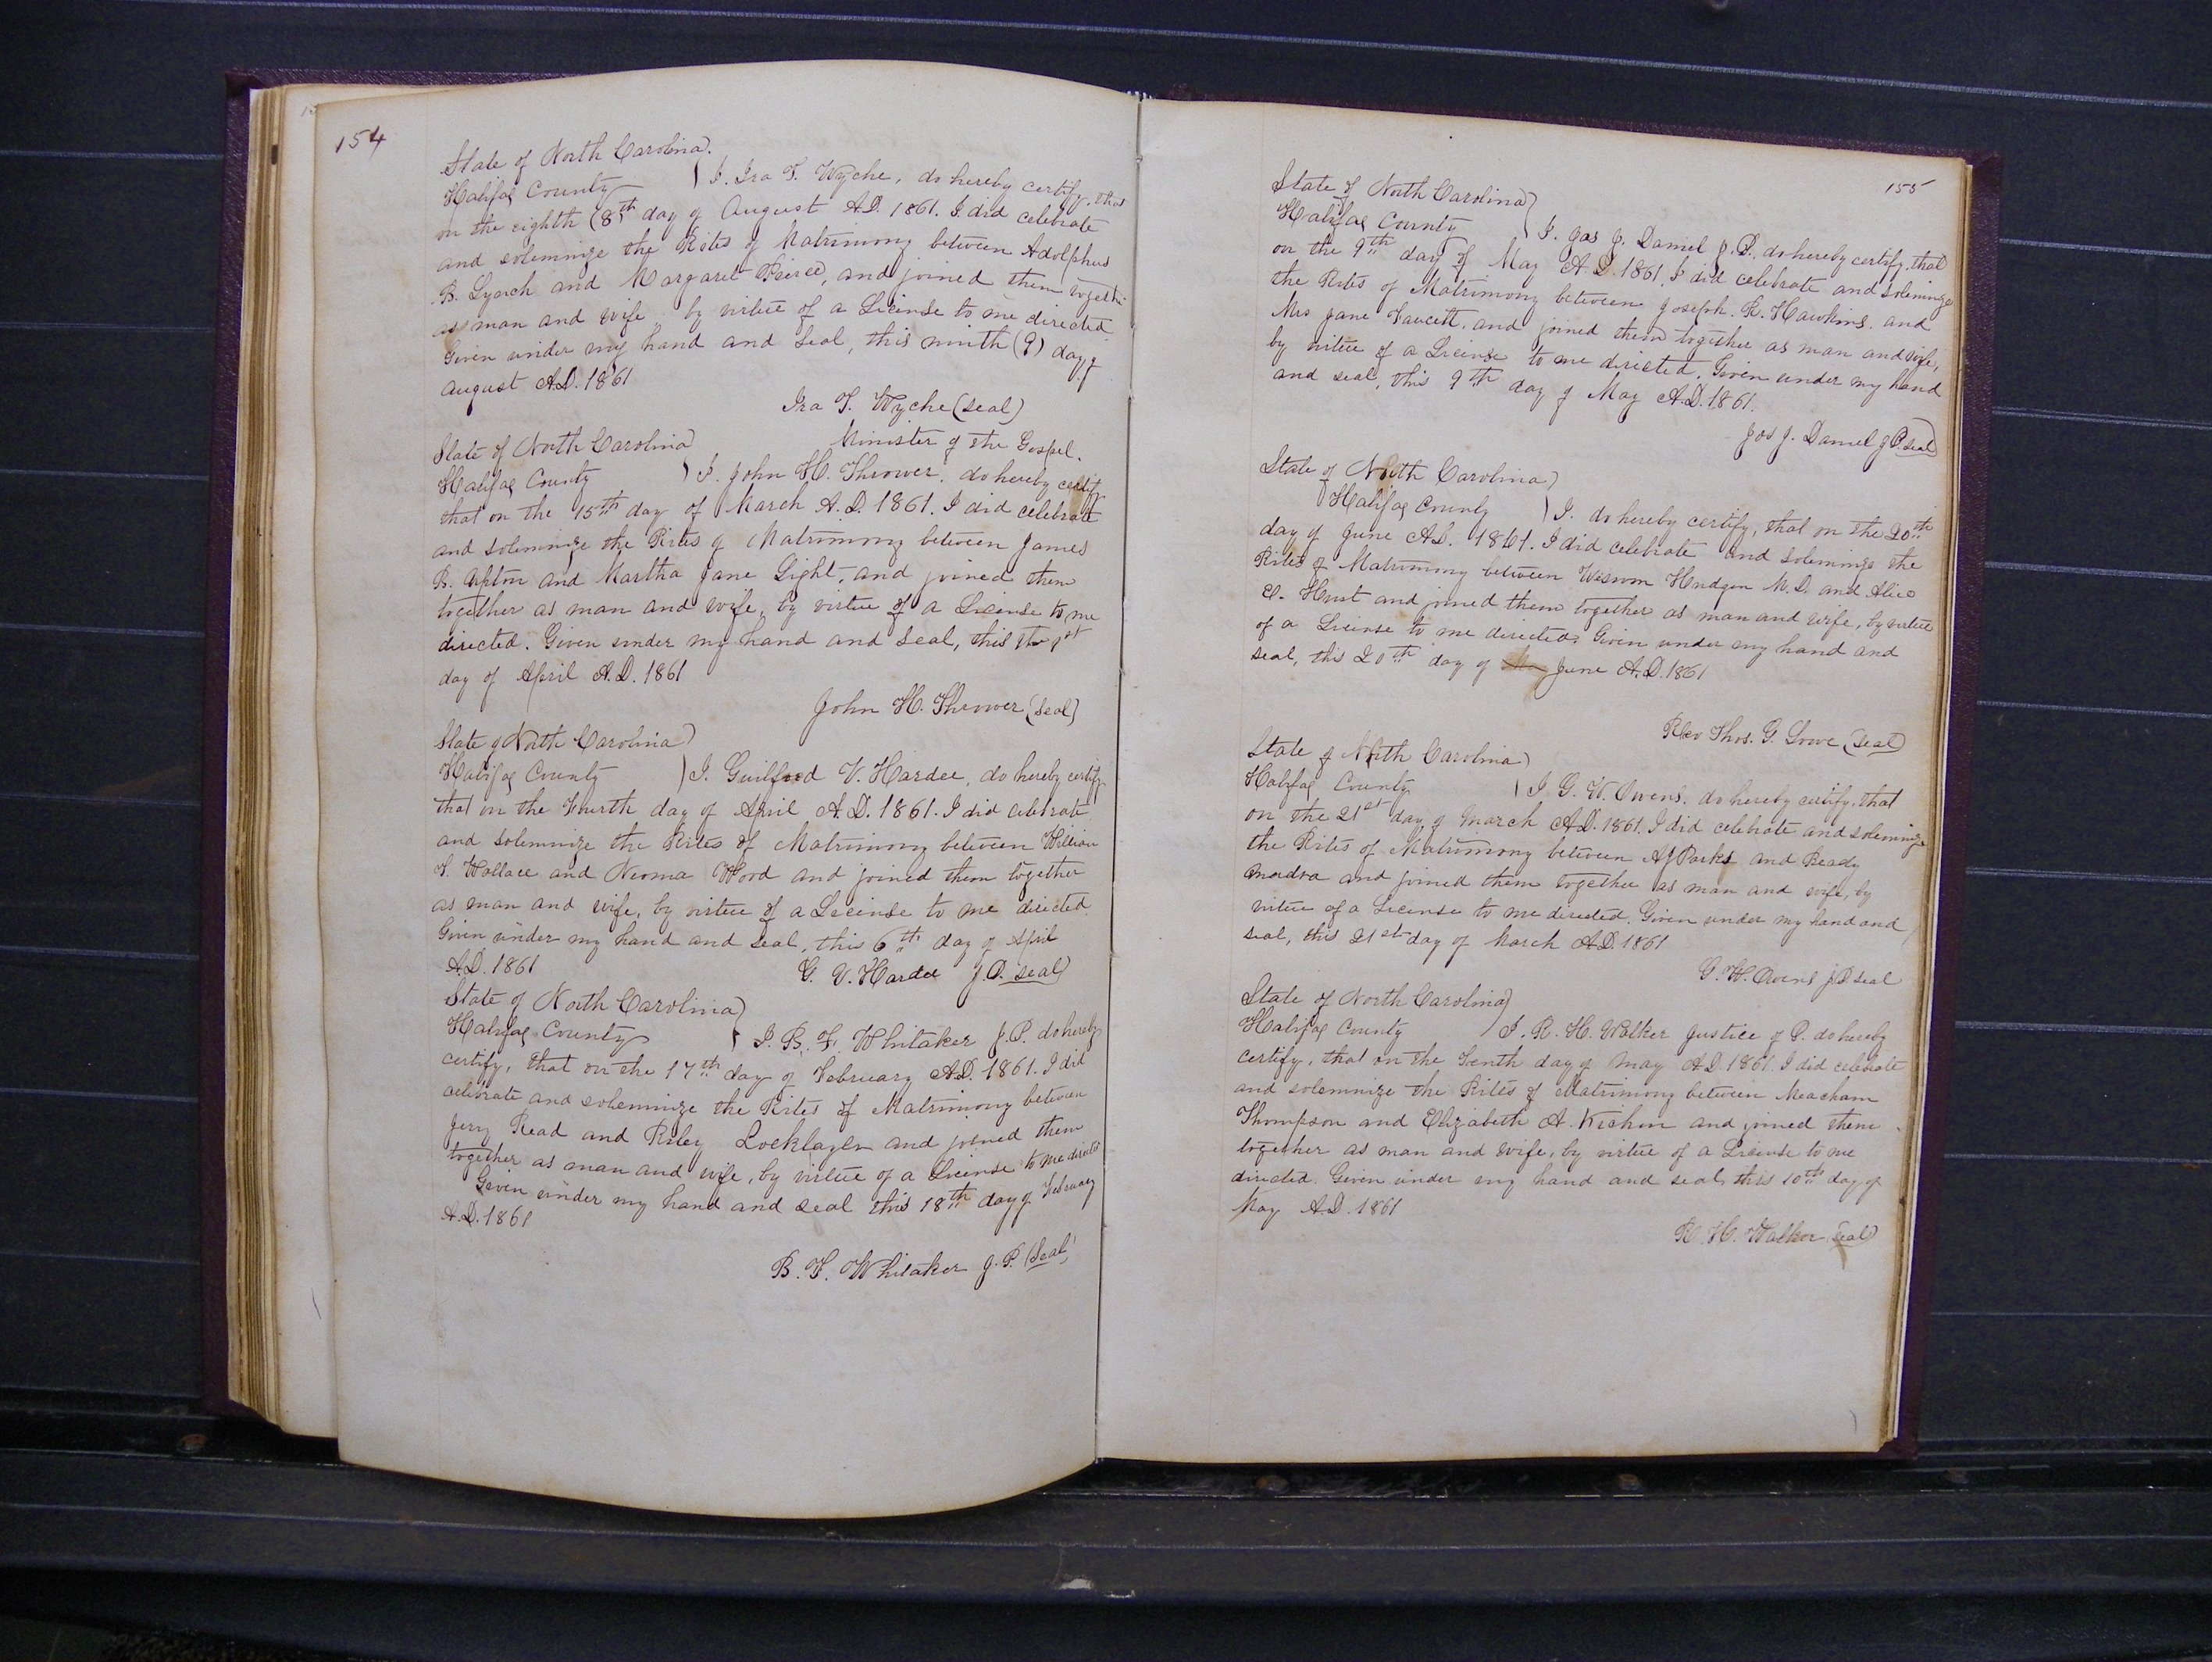 154
State of North Carolina
Halifax County I. Ira T. Wyche, do hereby certify, that
on the eighth (8th day of August A.D. 1861. I did celebrate
and solemnize the Rites of Matrimony between Adolphus
B. Lynch and Margaret Peirce, and joined them together
as man and wife by virtue of a License to me directed
Given under my hand and seal, this ninth (9) day of
August A.D. 1861
Ira T. Wyche (seal)
Minister of the Gospel.
State of North Carolina
Halifax County I. John H. Thrower, do hereby certify
that on the 15th day of March A.D. 1861. I did celebrate
and solemnize the Rites of Matrimony between James
B. Upton and Martha Jane Light, and joined them
together as man and wife, by virtue of a License to me
directed. Given under my hand and seal, this the 1st
day of April A.D. 1861
John H. Thrower (seal)
State of North Carolina
Halifax County I. Guilford V. Hardee, do hereby certify
that on the Fourth day of April A.D. 1861. I did celebrate
and solemnize the Rites of Matrimony between William
T. Wallace and Neoma Wood and joined them together
as man and wife, by virtue of a License to me directed.
Given under my hand and seal, this 6th day of April
A.D. 1861 G. V. Hardee J.P. seal)
State of North Carolina
Halifax County I. B. F. Whitaker J.P. do hereby
certify, that on the 17th day of February A.D. 1861. I did
celebrate and solemnize the Rites of Matrimony between
Jerry Read and Riley Locklayer and joined them
together as man and wife, by virtue of a License to me directed
Given under my hand and seal this 18th day of February
A.D. 1861
B. F. Whitaker J.P. (Seal)
155
State of North Carolina
Halifax County I. Jas J. Daniel J.P. do hereby certify, that
on the 9th day of May A.D. 1861. I did celebrate and solemnize
the Rites of Matrimony between Joseph. R. Hawkins. and
Mrs Jane Faucett, and joined them together as man and wife,
by virtue of a License to me directed. Given under my hand
and seal, this 9th day of May A.D. 1861.
Jos J. Daniel J.P. seal)
State of North Carolina
Halifax County I. do hereby certify, that on the 20th
day of June A.D. 1861. I did celebrate and solemnize the
Rites of Matrimony between Wisdom Hudgen M.D. and Alice
E. Hunt and joined them together as man and wife, by virtue
of a License to me directed. Given under my hand and
seal, this 20th day of June A.D. 1861
Rev Thos. G. Lowe (seal)
State of North Carolina
Halifax County I G. W. Owens. do hereby certify, that
on the 21st day of March A.D. 1861. I did celebrate and solemnize
the Rites of Matrimony between AJ Parks and Ready
and joined them together as man and wife, by
virtue of a License to me directed. Given under my hand and
seal, this 21st day of March A.D. 1861
G. W. Owens J.P seal
State of North Carolina
Halifax County I. R. H. Walker Justice of P. do hereby
certify, that on the Tenth day of May A.D. 1861. I did celebrate
and solemnize the Rites of Matrimony between Meacham
Thompson and Elizabeth A. and joined them
together as man and wife, by virtue of a License to me
directed. Given under my hand and seal, this 10th day of
May A.D. 1861
R. H. Walker (seal)